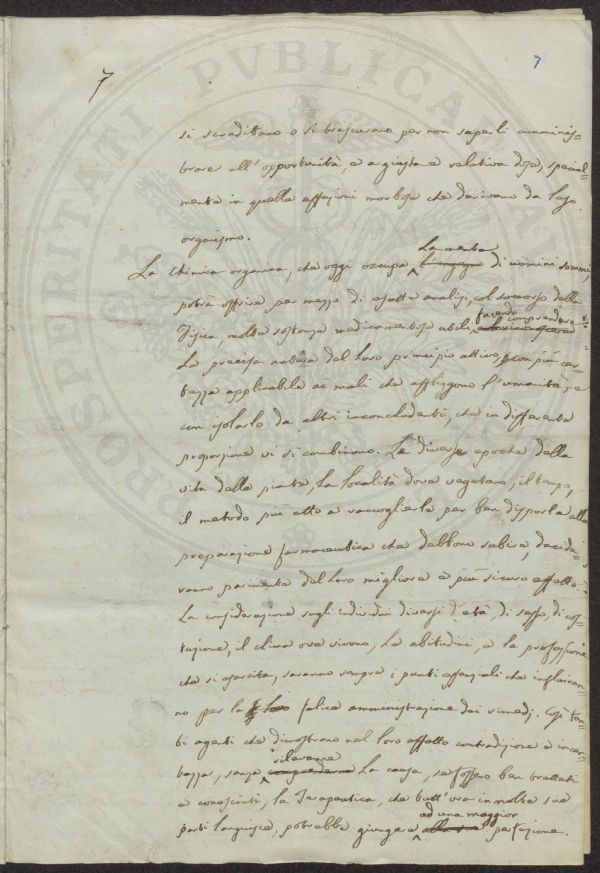 7
7
si screditano o si trascurano per non saperli amminis=
trare all'opportunità, e a giusta e relativa dose, special=
mente in quelle affezioni morbose che derivano da leso
organismo.
La Chimica organica, che oggi occupa la mente di uomini sommi,
potrà offrire per mezzo di esatte analisi, col soccorso della
Fisica, molte sostanze medicamentose utili, facendo comprendere
la precisa natura del loro principio attivo, con più cer=
tezza applicabile ai mali che affliggono l'umanità, e
con isolarlo da altri inconcludenti, che in differente
proporzione vi si combinano. Le diverse epoche della
vita delle piante, la località dove vegetano, il tempo,
il metodo più atto a raccoglierle per ben disporle alla
preparazione farmaceutica che debbono subire, decide=
ranno parimente del loro migliore e più sicuro effetto.
La considerazione sugli individui diversi d'età, di sesso, di cos=
tituzione, il clima ove vivono, le abitudini, e la professione
che si esercita, saranno sempre i punti essenziali che influiran=
no per la felice amministrazione dei rimedj. Così tan=
ti agenti che dimostrano nel loro effetto contradizione e incer=
tezza, senza rilevarne la causa, se fossero ben trattati
e conosciuti, la Terapeutica, che tutt'ora in molte sue
parti languisce, potrebbe giungere ad una maggior perfezione.
PROSPERITATI PVBLICAE